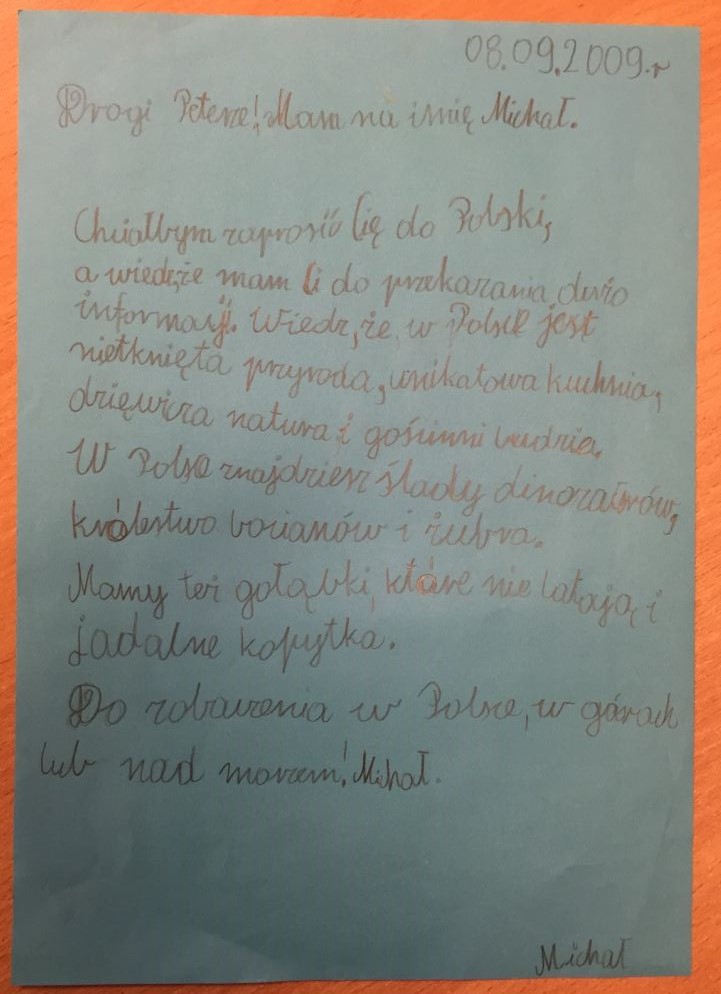 08.09.2009.r
Drogi Peterze! Mam na imię Michał.
Chciałbym zaprosić Cię do Polski,
a wiedz,że mam Ci do przekazania dużo
informacji. Wiedz, że w Polsce jest
nietknięta przyroda, unikatowa kuchnia,
dziewicza natura i gościnni ludzie.
W Polsce znajdziesz ślady dinozaurów,
królestwo bocianów i żubra.
Mamy też gołąbki, które nie latają i
jadalne kopytka.
Do zobaczenia w Polsce, w górach
lub nad morzem! Michał.
Michał